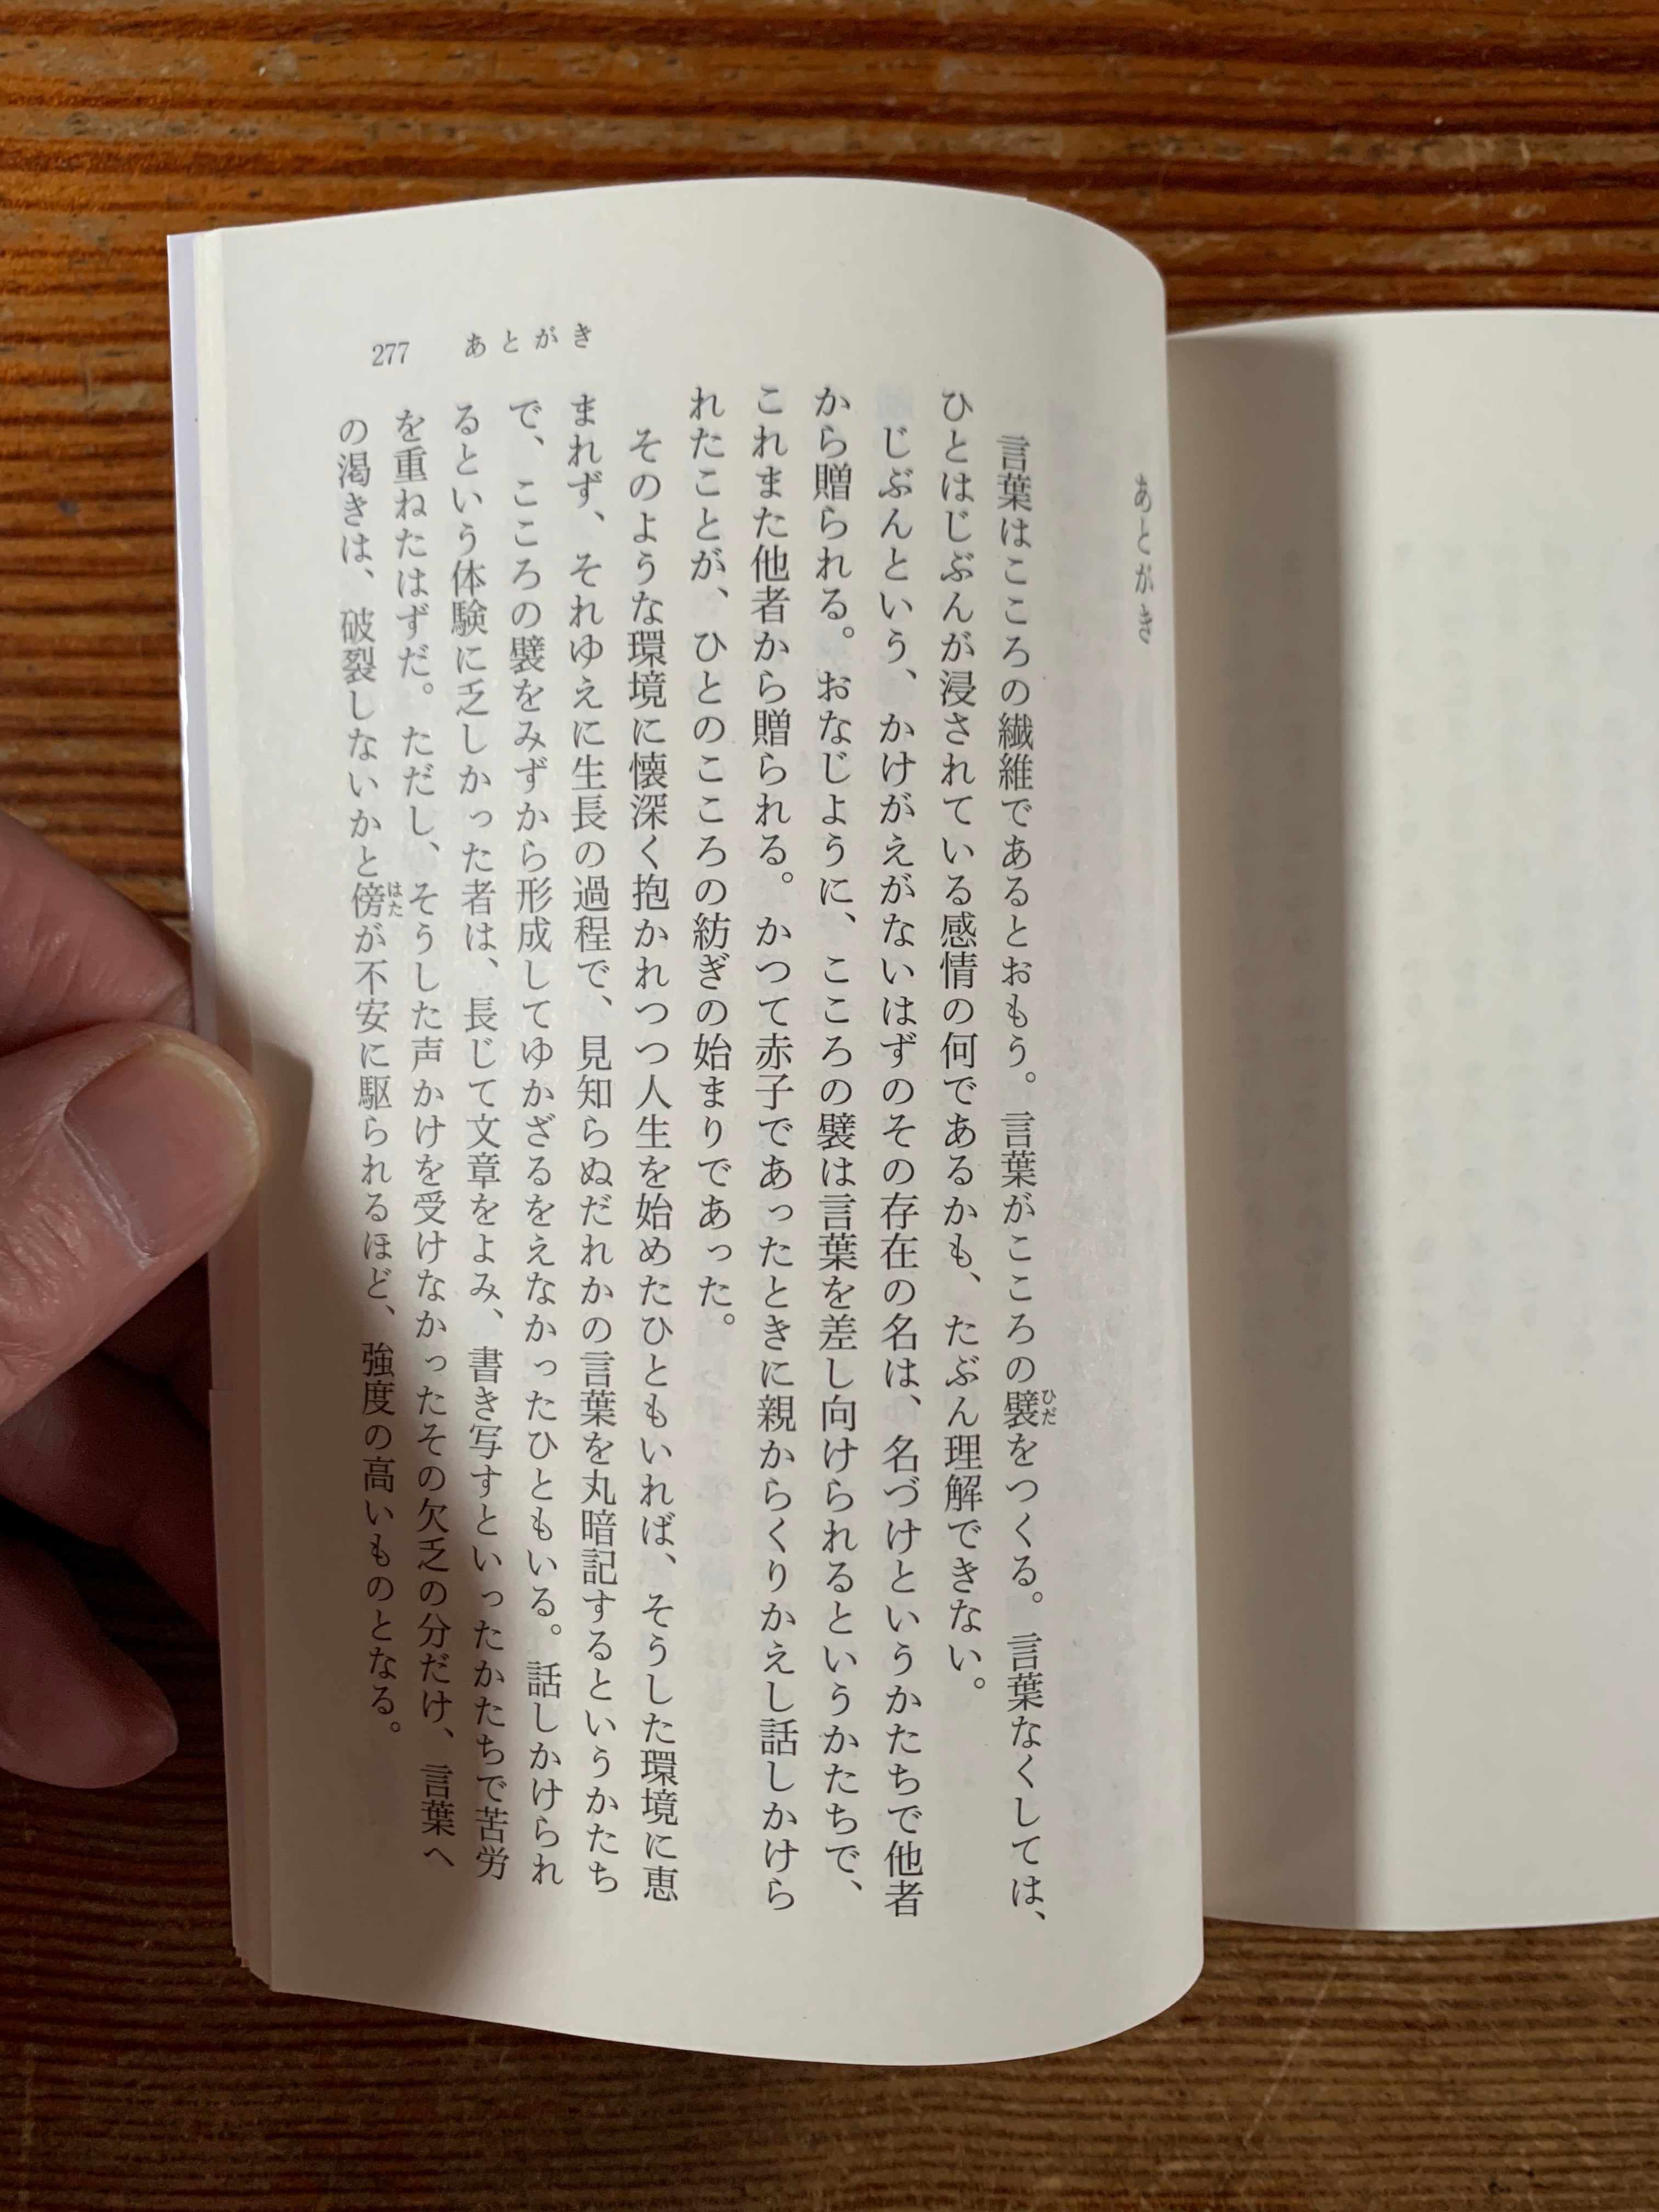 あとがき
言葉はこころの繊維であるとおもう。言葉がこころの襞をつくる。言葉なくしては、
ひだ
ひとはじぶんが浸されている感情の何であるかも、たぶん理解できない。
じぶんという、かけがえがないはずのその存在の名は、名づけというかたちで他者
から贈られる。おなじように、こころの襞は言葉を差し向けられるというかたちで、
これまた他者から贈られる。かつて赤子であったときに親からくりかえし話しかけら
れたことが、ひとのこころの紡ぎの始まりであった。
そのような環境に懐深く抱かれつつ人生を始めたひともいれば、そうした環境に恵
まれず、それゆえに生長の過程で、見知らぬだれかの言葉を丸暗記するというかたち
で、こころの襞をみずから形成してゆかざるをえなかったひともいる。話しかけられ
るという体験に乏しかった者は、長じて文章をよみ、書き写すといったかたちで苦労
を重ねたはずだ。ただし、そうした声かけを受けなかったその欠乏の分だけ、言葉へ
の渇きは、破裂しないかと傍が不安に駆られるほど、強度の高いものとなる。
はた
277 あとがき